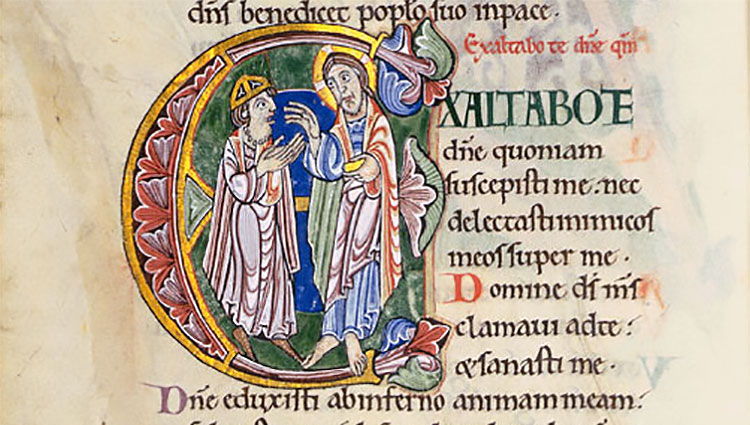 dn̄s benedicet poplo suo inpace.
Exaltabo te dn̄e qm̄
EXALTABOTE
dn̄e quoniam
suscepisti me: nec
delectasti inimicos
meos super me.
Domine ds̄ ms̄
clamaui ad te:
& sanasti me.
Dn̄e eduxisti ab inferno animam meam: